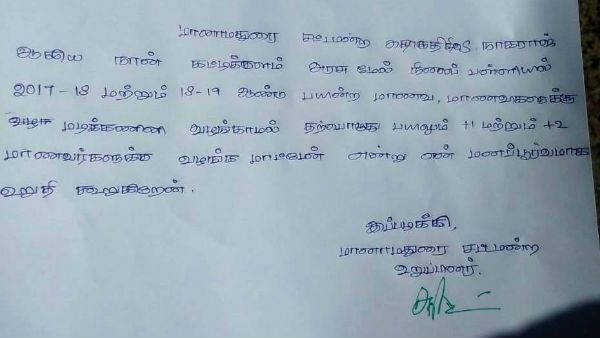 மானாமதுரை சட்டமன்ற தொகுதி S. நாகராஜ்
ஆகிய நான் அரசு மேல் நிலைப் பள்ளியில்
2017-18 மற்றும் 18-19 ஆண்டு பயின்ற மாணவ, மாணவிகளுக்கு
மடிக்கணினி வழங்காமல் தற்பொழுது பயிலும் +1 மற்றும் +2
மாணவர்களுக்கு வழங்க மாட்டேன் என்று என் மனப்பூர்வமாக
உறுதி கூறுகிறேன்.
இப்படிக்கு,
மானாமதுரை சட்டமன்ற
உறுப்பினர்.